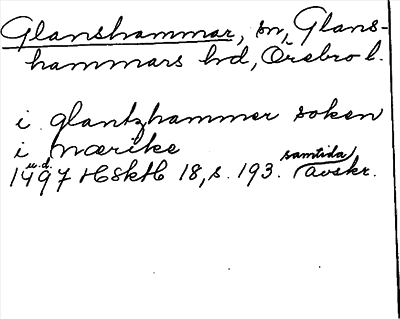 Glanshammar, sn, Glans-
hammars hd, Örebro l.
i glantzhammer soken
i nærike
u.d. samtida
1497 HSkH 18, s. 193. avskr.